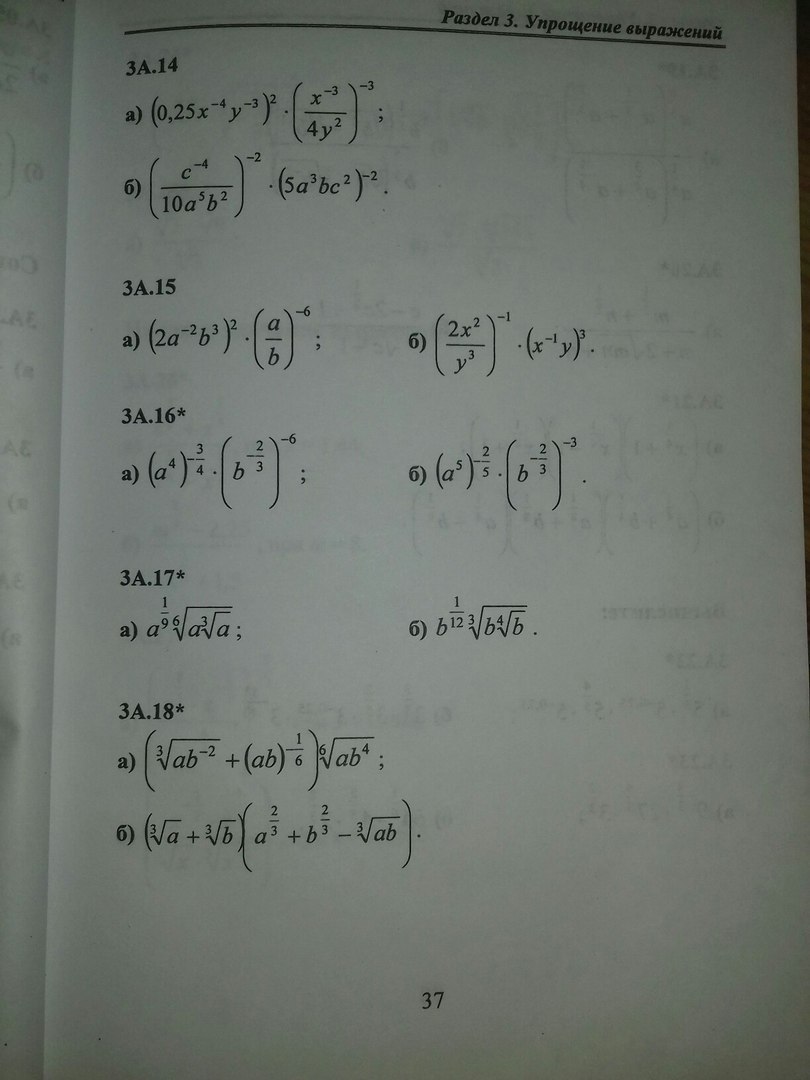 Раздел 3. Упрощение выражений
3А.14
а) (0,25x⁻⁴y⁻³)² · (x⁻³/4y²)⁻³ ;
б) (c⁻⁴/10a⁵b²)⁻² · (5a³bc²)⁻² .
3А.15
а) (2a⁻²b³)² · (a/b)⁻⁶ ; б) (2x²/y³)⁻¹ · (x⁻¹y)³ .
3А.16*
а) (a⁴)^(-3/4) · (b^(-2/3))⁻⁶ ; б) (a⁵)^(-2/5) · (b^(-2/3))⁻³ .
3А.17*
а) a^(1/9) ⁶√(a ³√a) ; б) b^(1/12) ³√(b ⁴√b) .
3А.18*
а) (³√(ab⁻²) + (ab)^(-1/6)) ⁶√(ab⁴) ;
б) (³√a + ³√b)(a^(2/3) + b^(2/3) − ³√(ab)) .
37